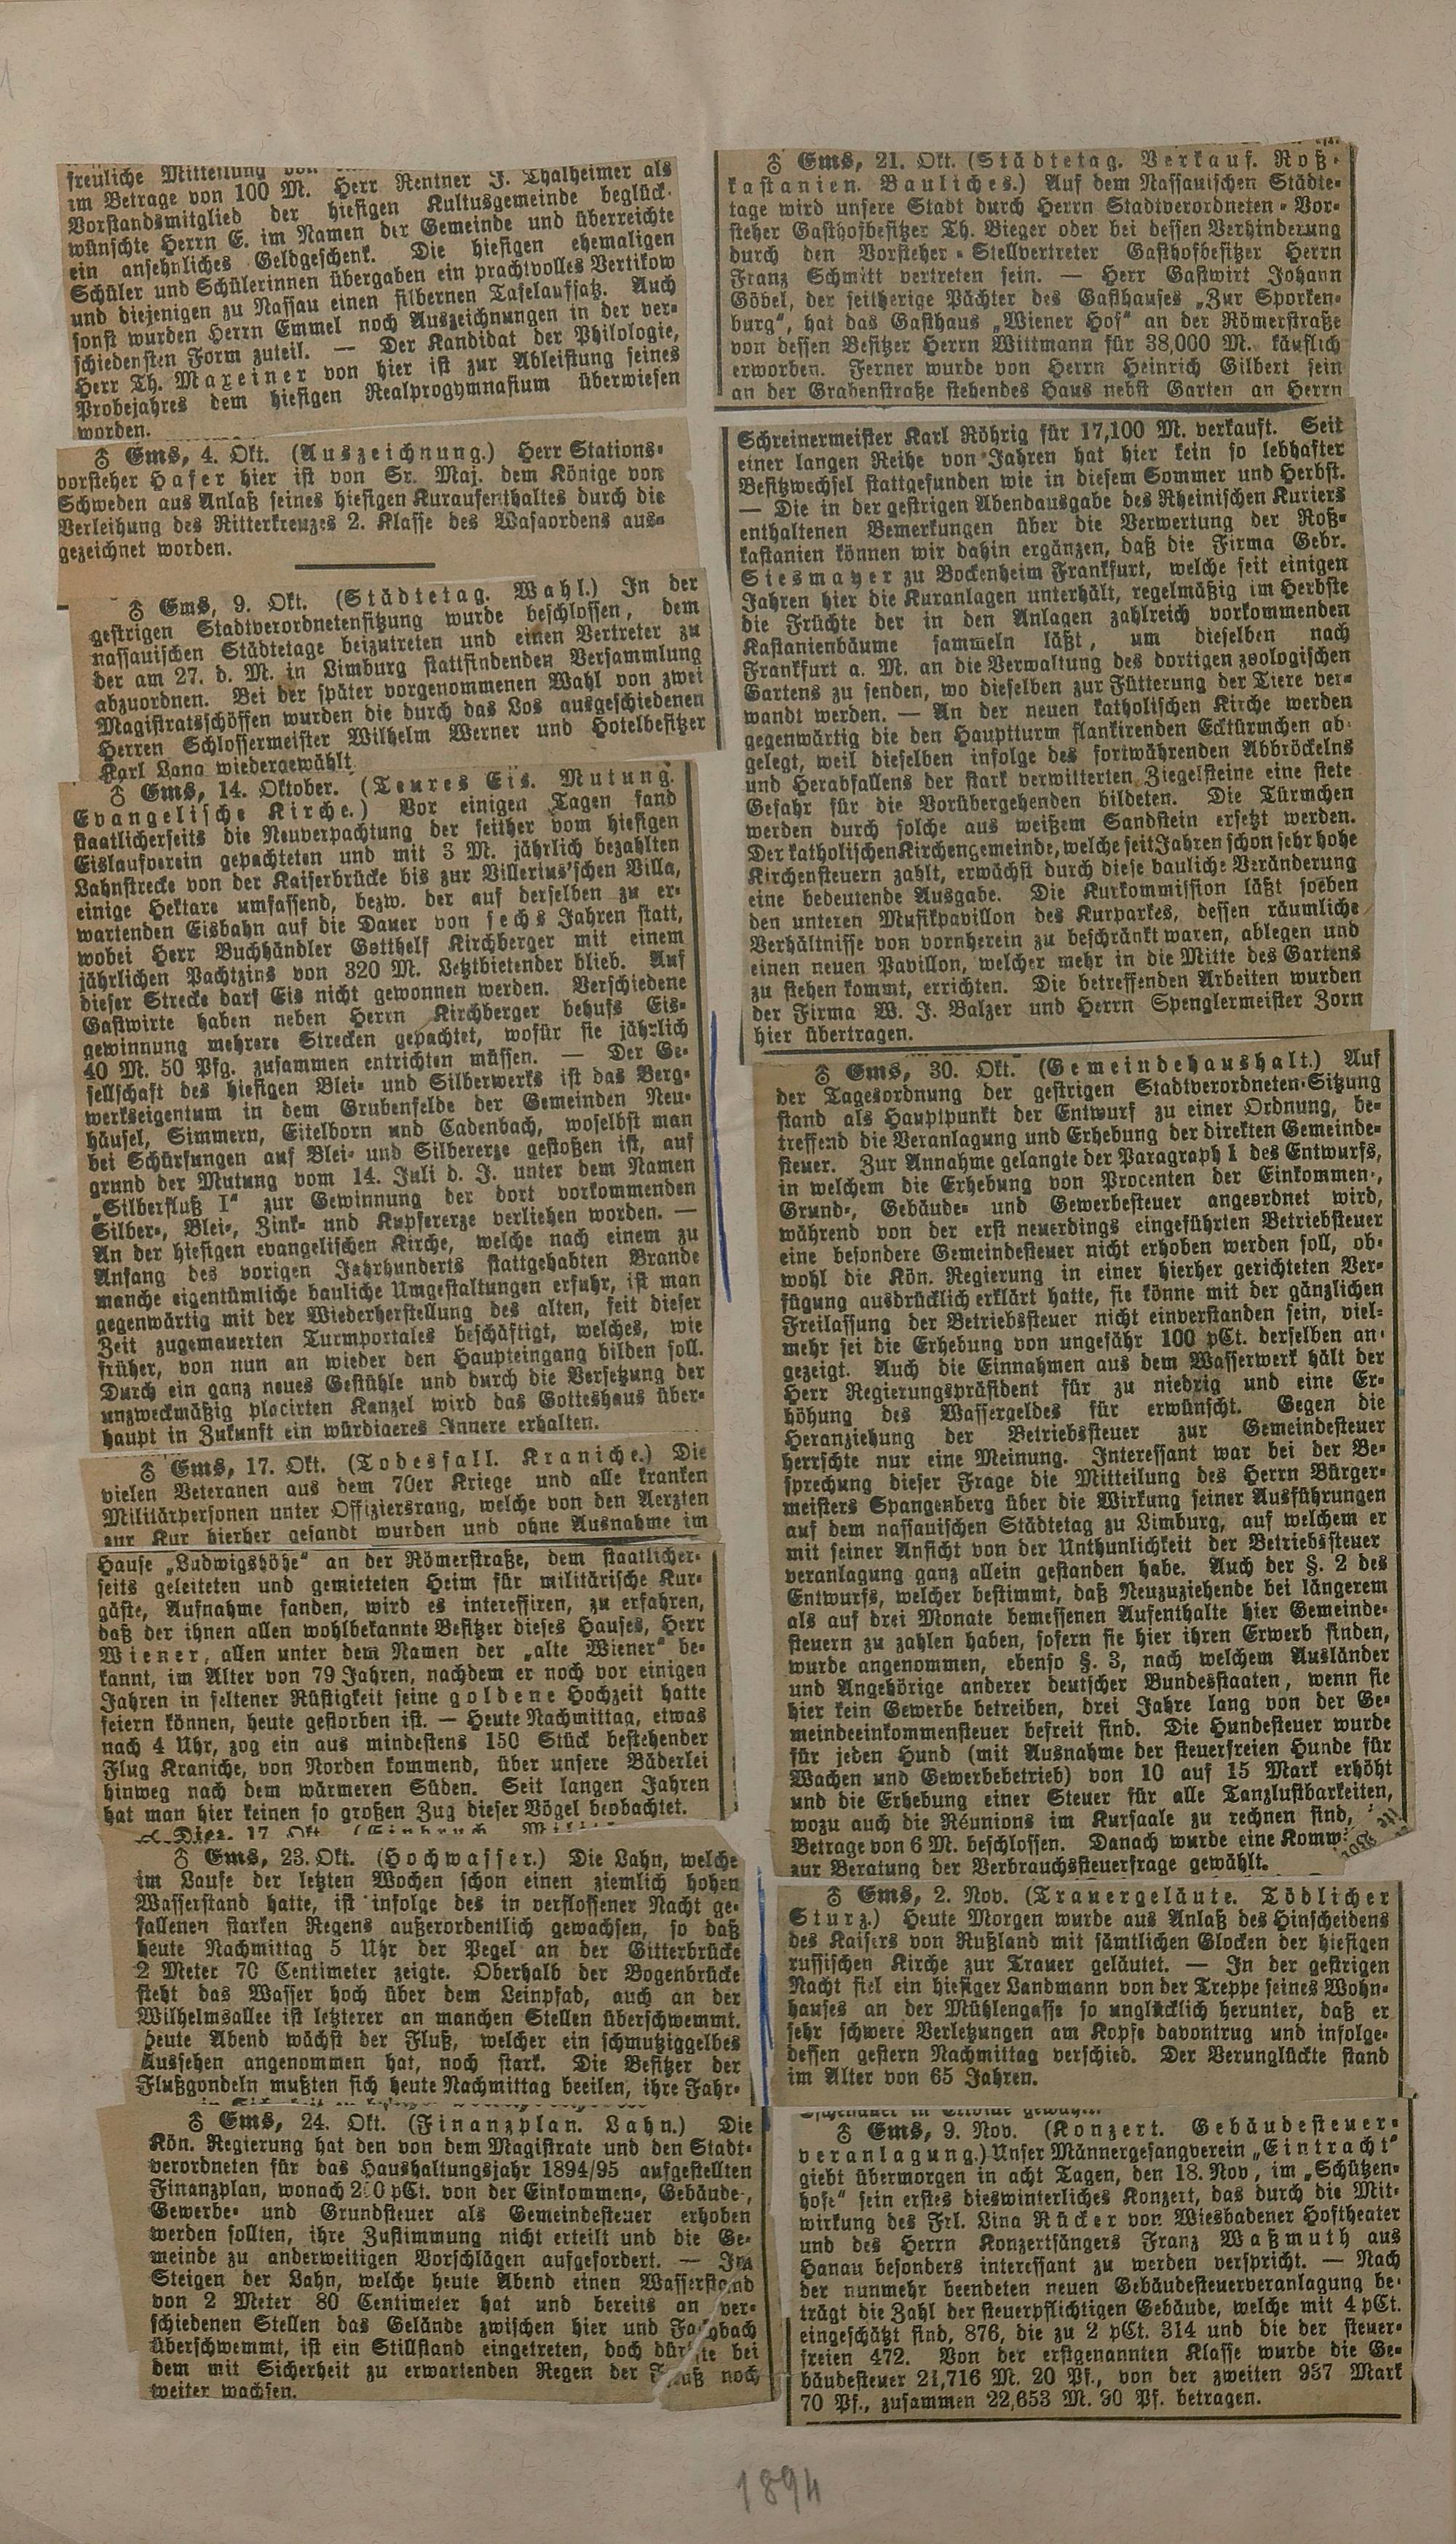 freuliche Mitteilung von
im Betrage von 100 M. Herr Rentner J. Thalheimer als
Vorstandsmitglied der hiesigen Kultusgemeinde beglück-
wünschte Herrn E. im Namen der Gemeinde und überreichte
ein ansehnliches Geldgeschenk. Die hiesigen ehemaligen
Schüler und Schülerinnen übergaben ein prachtvolles Vertikow
und diejenigen zu Nassau einen silbernen Tafelaufsatz. Auch
sonst wurden Herrn Emmel noch Auszeichnungen in der ver-
schiedensten Form zuteil. — Der Kandidat der Philologie,
Herr Th. Maxeiner von hier ist zur Ableistung seines
Probejahres dem hiesigen Realprogymnasium überwiesen
worden.
♁ Ems, 4. Okt. (Auszeichnung.) Herr Stations-
vorsteher Hafer hier ist von Sr. Maj. dem Könige von
Schweden aus Anlaß seines hiesigen Kuraufenthaltes durch die
Verleihung des Ritterkreuzes 2. Klasse des Wasaordens aus-
gezeichnet worden.
♁ Ems, 9. Okt. (Städtetag. Wahl.) In der
gestrigen Stadtverordnetensitzung wurde beschlossen, dem
nassauischen Städtetage beizutreten und einen Vertreter zu
der am 27. d. M. in Limburg stattfindenden Versammlung
abzuordnen. Bei der später vorgenommenen Wahl von zwei
Magistratsschöffen wurden die durch das Los ausgeschiedenen
Herren Schlossermeister Wilhelm Werner und Hotelbesitzer
Karl Lang wiedergewählt
♁ Ems, 14. Oktober. (Teures Eis. Mutung.
Evangelische Kirche.) Vor einigen Tagen fand
staatlicherseits die Neuverpachtung der seither vom hiesigen
Eislaufverein gepachteten und mit 3 M. jährlich bezahlten
Lahnstrecke von der Kaiserbrücke bis zur Villerius'schen Villa,
einige Hektare umfassend, bezw. der auf derselben zu er-
wartenden Eisbahn auf die Dauer von sechs Jahren statt,
wobei Herr Buchhändler Gotthelf Kirchberger mit einem
jährlichen Pachtzins von 320 M. Letztbietender blieb. Auf
dieser Strecke darf Eis nicht gewonnen werden. Verschiedene
Gastwirte haben neben Herrn Kirchberger behufs Eis-
gewinnung mehrere Strecken gepachtet, wofür sie jährlich
40 M. 50 Pfg. zusammen entrichten müssen. — Der Ge-
sellschaft des hiesigen Blei- und Silberwerks ist das Berg-
werkseigentum in dem Grubenfelde der Gemeinden Neu-
häusel, Simmern, Eitelborn und Cadenbach, woselbst man
bei Schürfungen auf Blei- und Silbererze gestoßen ist, auf
grund der Mutung vom 14. Juli d. J. unter dem Namen
„Silberfluß I“ zur Gewinnung der dort vorkommenden
Silber-, Blei-, Zink- und Kupfererze verliehen worden. —
An der hiesigen evangelischen Kirche, welche nach einem zu
Anfang des vorigen Jahrhunderts stattgehabten Brande
manche eigentümliche bauliche Umgestaltungen erfuhr, ist man
gegenwärtig mit der Wiederherstellung des alten, seit dieser
Zeit zugemauerten Turmportales beschäftigt, welches, wie
früher, von nun an wieder den Haupteingang bilden soll.
Durch ein ganz neues Gestühle und durch die Versetzung der
unzweckmäßig placirten Kanzel wird das Gotteshaus über-
haupt in Zukunft ein würdigeres Innere erhalten.
♁ Ems, 17. Okt. (Todesfall. Kraniche.) Die
vielen Veteranen aus dem 70er Kriege und alle kranken
Militärpersonen unter Offiziersrang, welche von den Aerzten
zur Kur hierher gesandt wurden und ohne Ausnahme im
Hause „Ludwigshöhe“ an der Römerstraße, dem staatlicher-
seits geleiteten und gemieteten Heim für militärische Kur-
gäste, Aufnahme fanden, wird es interessiren, zu erfahren,
daß der ihnen allen wohlbekannte Besitzer dieses Hauses, Herr
Wiener, allen unter dem Namen der „alte Wiener“ be-
kannt, im Alter von 79 Jahren, nachdem er noch vor einigen
Jahren in seltener Rüstigkeit seine goldene Hochzeit hatte
feiern können, heute gestorben ist. — Heute Nachmittag, etwas
nach 4 Uhr, zog ein aus mindestens 150 Stück bestehender
Flug Kraniche, von Norden kommend, über unsere Bäderlei
hinweg nach dem wärmeren Süden. Seit langen Jahren
hat man hier keinen so großen Zug dieser Vögel beobachtet.
Diez, 17. Okt. (Einbruch.
♁ Ems, 23. Okt. (Hochwasser.) Die Lahn, welche
im Laufe der letzten Wochen schon einen ziemlich hohen
Wasserstand hatte, ist infolge des in verflossener Nacht ge-
fallenen starken Regens außerordentlich gewachsen, so daß
heute Nachmittag 5 Uhr der Pegel an der Gitterbrücke
2 Meter 70 Centimeter zeigte. Oberhalb der Bogenbrücke
steht das Wasser hoch über dem Leinpfad, auch an der
Wilhelmsallee ist letzterer an manchen Stellen überschwemmt.
Heute Abend wächst der Fluß, welcher ein schmutziggelbes
Aussehen angenommen hat, noch stark. Die Besitzer der
Flußgondeln mußten sich heute Nachmittag beeilen, ihre Fahr-
♁ Ems, 24. Okt. (Finanzplan. Lahn.) Die
Kön. Regierung hat den von dem Magistrate und den Stadt-
verordneten für das Haushaltungsjahr 1894/95 aufgestellten
Finanzplan, wonach pCt. von der Einkommen-, Gebäude-,
Gewerbe- und Grundsteuer als Gemeindesteuer erhoben
werden sollten, ihre Zustimmung nicht erteilt und die Ge-
meinde zu anderweitigen Vorschlägen aufgefordert. — Im
Steigen der Lahn, welche heute Abend einen Wasserstand
von 2 Meter 80 Centimeter hat und bereits an ver-
schiedenen Stellen das Gelände zwischen hier und Fachbach
überschwemmt, ist ein Stillstand eingetreten, doch dürfte bei
dem mit Sicherheit zu erwartenden Regen der Fluß noch
weiter wachsen.
♁ Ems, 21. Okt. (Städtetag. Verkauf. Roß-
kastanien. Bauliches.) Auf dem Nassauischen Städte-
tage wird unsere Stadt durch Herrn Stadtverordneten-Vor-
steher Gasthofbesitzer Th. Bieger oder bei dessen Verhinderung
durch den Vorsteher-Stellvertreter Gasthofbesitzer Herrn
Franz Schmitt vertreten sein. — Herr Gastwirt Johann
Göbel, der seitherige Pächter des Gasthauses „Zur Sporken-
burg“, hat das Gasthaus „Wiener Hof“ an der Römerstraße
von dessen Besitzer Herrn Wittmann für 38,000 M. käuflich
erworben. Ferner wurde von Herrn Heinrich Gilbert sein
an der Grabenstraße stehendes Haus nebst Garten an Herrn
Schreinermeister Karl Röhrig für 17,100 M. verkauft. Seit
einer langen Reihe von Jahren hat hier kein so lebhafter
Besitzwechsel stattgefunden wie in diesem Sommer und Herbst.
— Die in der gestrigen Abendausgabe des Rheinischen Kuriers
enthaltenen Bemerkungen über die Verwertung der Roß-
kastanien können wir dahin ergänzen, daß die Firma Gebr.
Siesmayer zu Bockenheim Frankfurt, welche seit einigen
Jahren hier die Kuranlagen unterhält, regelmäßig im Herbste
die Früchte der in den Anlagen zahlreich vorkommenden
Kastanienbäume sammeln läßt, um dieselben nach
Frankfurt a. M. an die Verwaltung des dortigen zoologischen
Gartens zu senden, wo dieselben zur Fütterung der Tiere ver-
wandt werden. — An der neuen katholischen Kirche werden
gegenwärtig die den Hauptturm flankirenden Ecktürmchen ab-
gelegt, weil dieselben infolge des fortwährenden Abbröckelns
und Herabfallens der stark verwitterten Ziegelsteine eine stete
Gefahr für die Vorübergehenden bildeten. Die Türmchen
werden durch solche aus weißem Sandstein ersetzt werden.
Der katholischen Kirchengemeinde, welche seit Jahren schon sehr hohe
Kirchensteuern zahlt, erwächst durch diese bauliche Veränderung
eine bedeutende Ausgabe. Die Kurkommission läßt soeben
den unteren Musikpavillon des Kurparkes, dessen räumliche
Verhältnisse von vornherein zu beschränkt waren, ablegen und
einen neuen Pavillon, welcher mehr in die Mitte des Gartens
zu stehen kommt, errichten. Die betreffenden Arbeiten wurden
der Firma W. J. Balzer und Herrn Spenglermeister Zorn
hier übertragen.
♁ Ems, 30. Okt. (Gemeindehaushalt.) Auf
der Tagesordnung der gestrigen Stadtverordneten-Sitzung
stand als Hauptpunkt der Entwurf zu einer Ordnung, be-
treffend die Veranlagung und Erhebung der direkten Gemeinde-
steuer. Zur Annahme gelangte der Paragraph 1 des Entwurfs,
in welchem die Erhebung von Procenten der Einkommen-,
Grund-, Gebäude- und Gewerbesteuer angeordnet wird,
während von der erst neuerdings eingeführten Betriebsteuer
eine besondere Gemeindesteuer nicht erhoben werden soll, ob-
wohl die Kön. Regierung in einer hierher gerichteten Ver-
fügung ausdrücklich erklärt hatte, sie könne mit der gänzlichen
Freilassung der Betriebssteuer nicht einverstanden sein, viel-
mehr sei die Erhebung von ungefähr 100 pCt. derselben an-
gezeigt. Auch die Einnahmen aus dem Wasserwerk hält der
Herr Regierungspräsident für zu niedrig und eine Er-
höhung des Wassergeldes für erwünscht. Gegen die
Heranziehung der Betriebssteuer zur Gemeindesteuer
herrschte nur eine Meinung. Interessant war bei der Be-
sprechung dieser Frage die Mitteilung des Herrn Bürger-
meisters Spangenberg über die Wirkung seiner Ausführungen
auf dem nassauischen Städtetag zu Limburg, auf welchem er
mit seiner Ansicht von der Unthunlichkeit der Betriebssteuer
veranlagung ganz allein gestanden habe. Auch der §. 2 des
Entwurfs, welcher bestimmt, daß Neuzuziehende bei längerem
als auf drei Monate bemessenen Aufenthalte hier Gemeinde-
steuern zu zahlen haben, sofern sie hier ihren Erwerb finden,
wurde angenommen, ebenso §. 3, nach welchem Ausländer
und Angehörige anderer deutscher Bundesstaaten, wenn sie
hier kein Gewerbe betreiben, drei Jahre lang von der Ge-
meindeeinkommensteuer befreit sind. Die Hundesteuer wurde
für jeden Hund (mit Ausnahme der steuerfreien Hunde für
Wachen und Gewerbebetrieb) von 10 auf 15 Mark erhöht
und die Erhebung einer Steuer für alle Tanzlustbarkeiten,
wozu auch die Réunions im Kursaale zu rechnen sind,
Betrage von 6 M. beschlossen. Danach wurde eine Komm
zur Beratung der Verbrauchssteuerfrage gewählt.
♁ Ems, 2. Nov. (Trauergeläute. Tödlicher
Sturz.) Heute Morgen wurde aus Anlaß des Hinscheidens
des Kaisers von Rußland mit sämtlichen Glocken der hiesigen
russischen Kirche zur Trauer geläutet. — In der gestrigen
Nacht fiel ein hiesiger Landmann von der Treppe seines Wohn-
hauses an der Mühlengasse so unglücklich herunter, daß er
sehr schwere Verletzungen am Kopfe davontrug und infolge-
dessen gestern Nachmittag verschied. Der Verunglückte stand
im Alter von 65 Jahren.
♁ Ems, 9. Nov. (Konzert. Gebäudesteuer-
veranlagung.) Unser Männergesangverein „Eintracht“
giebt übermorgen in acht Tagen, den 18. Nov, im „Schützen-
hofe“ sein erstes dieswinterliches Konzert, das durch die Mit-
wirkung des Frl. Lina Rücker von Wiesbadener Hoftheater
und des Herrn Konzertsängers Franz Waßmuth aus
Hanau besonders interessant zu werden verspricht. — Nach
der nunmehr beendeten neuen Gebäudesteuerveranlagung be-
trägt die Zahl der steuerpflichtigen Gebäude, welche mit 4 pCt.
eingeschätzt sind, 876, die zu 2 pCt. 314 und die der steuer-
freien 472. Von der erstgenannten Klasse wurde die Ge-
bäudesteuer 21,716 M. 20 Pf., von der zweiten 937 Mark
70 Pf., zusammen 22,653 M. 90 Pf. betragen.
1894